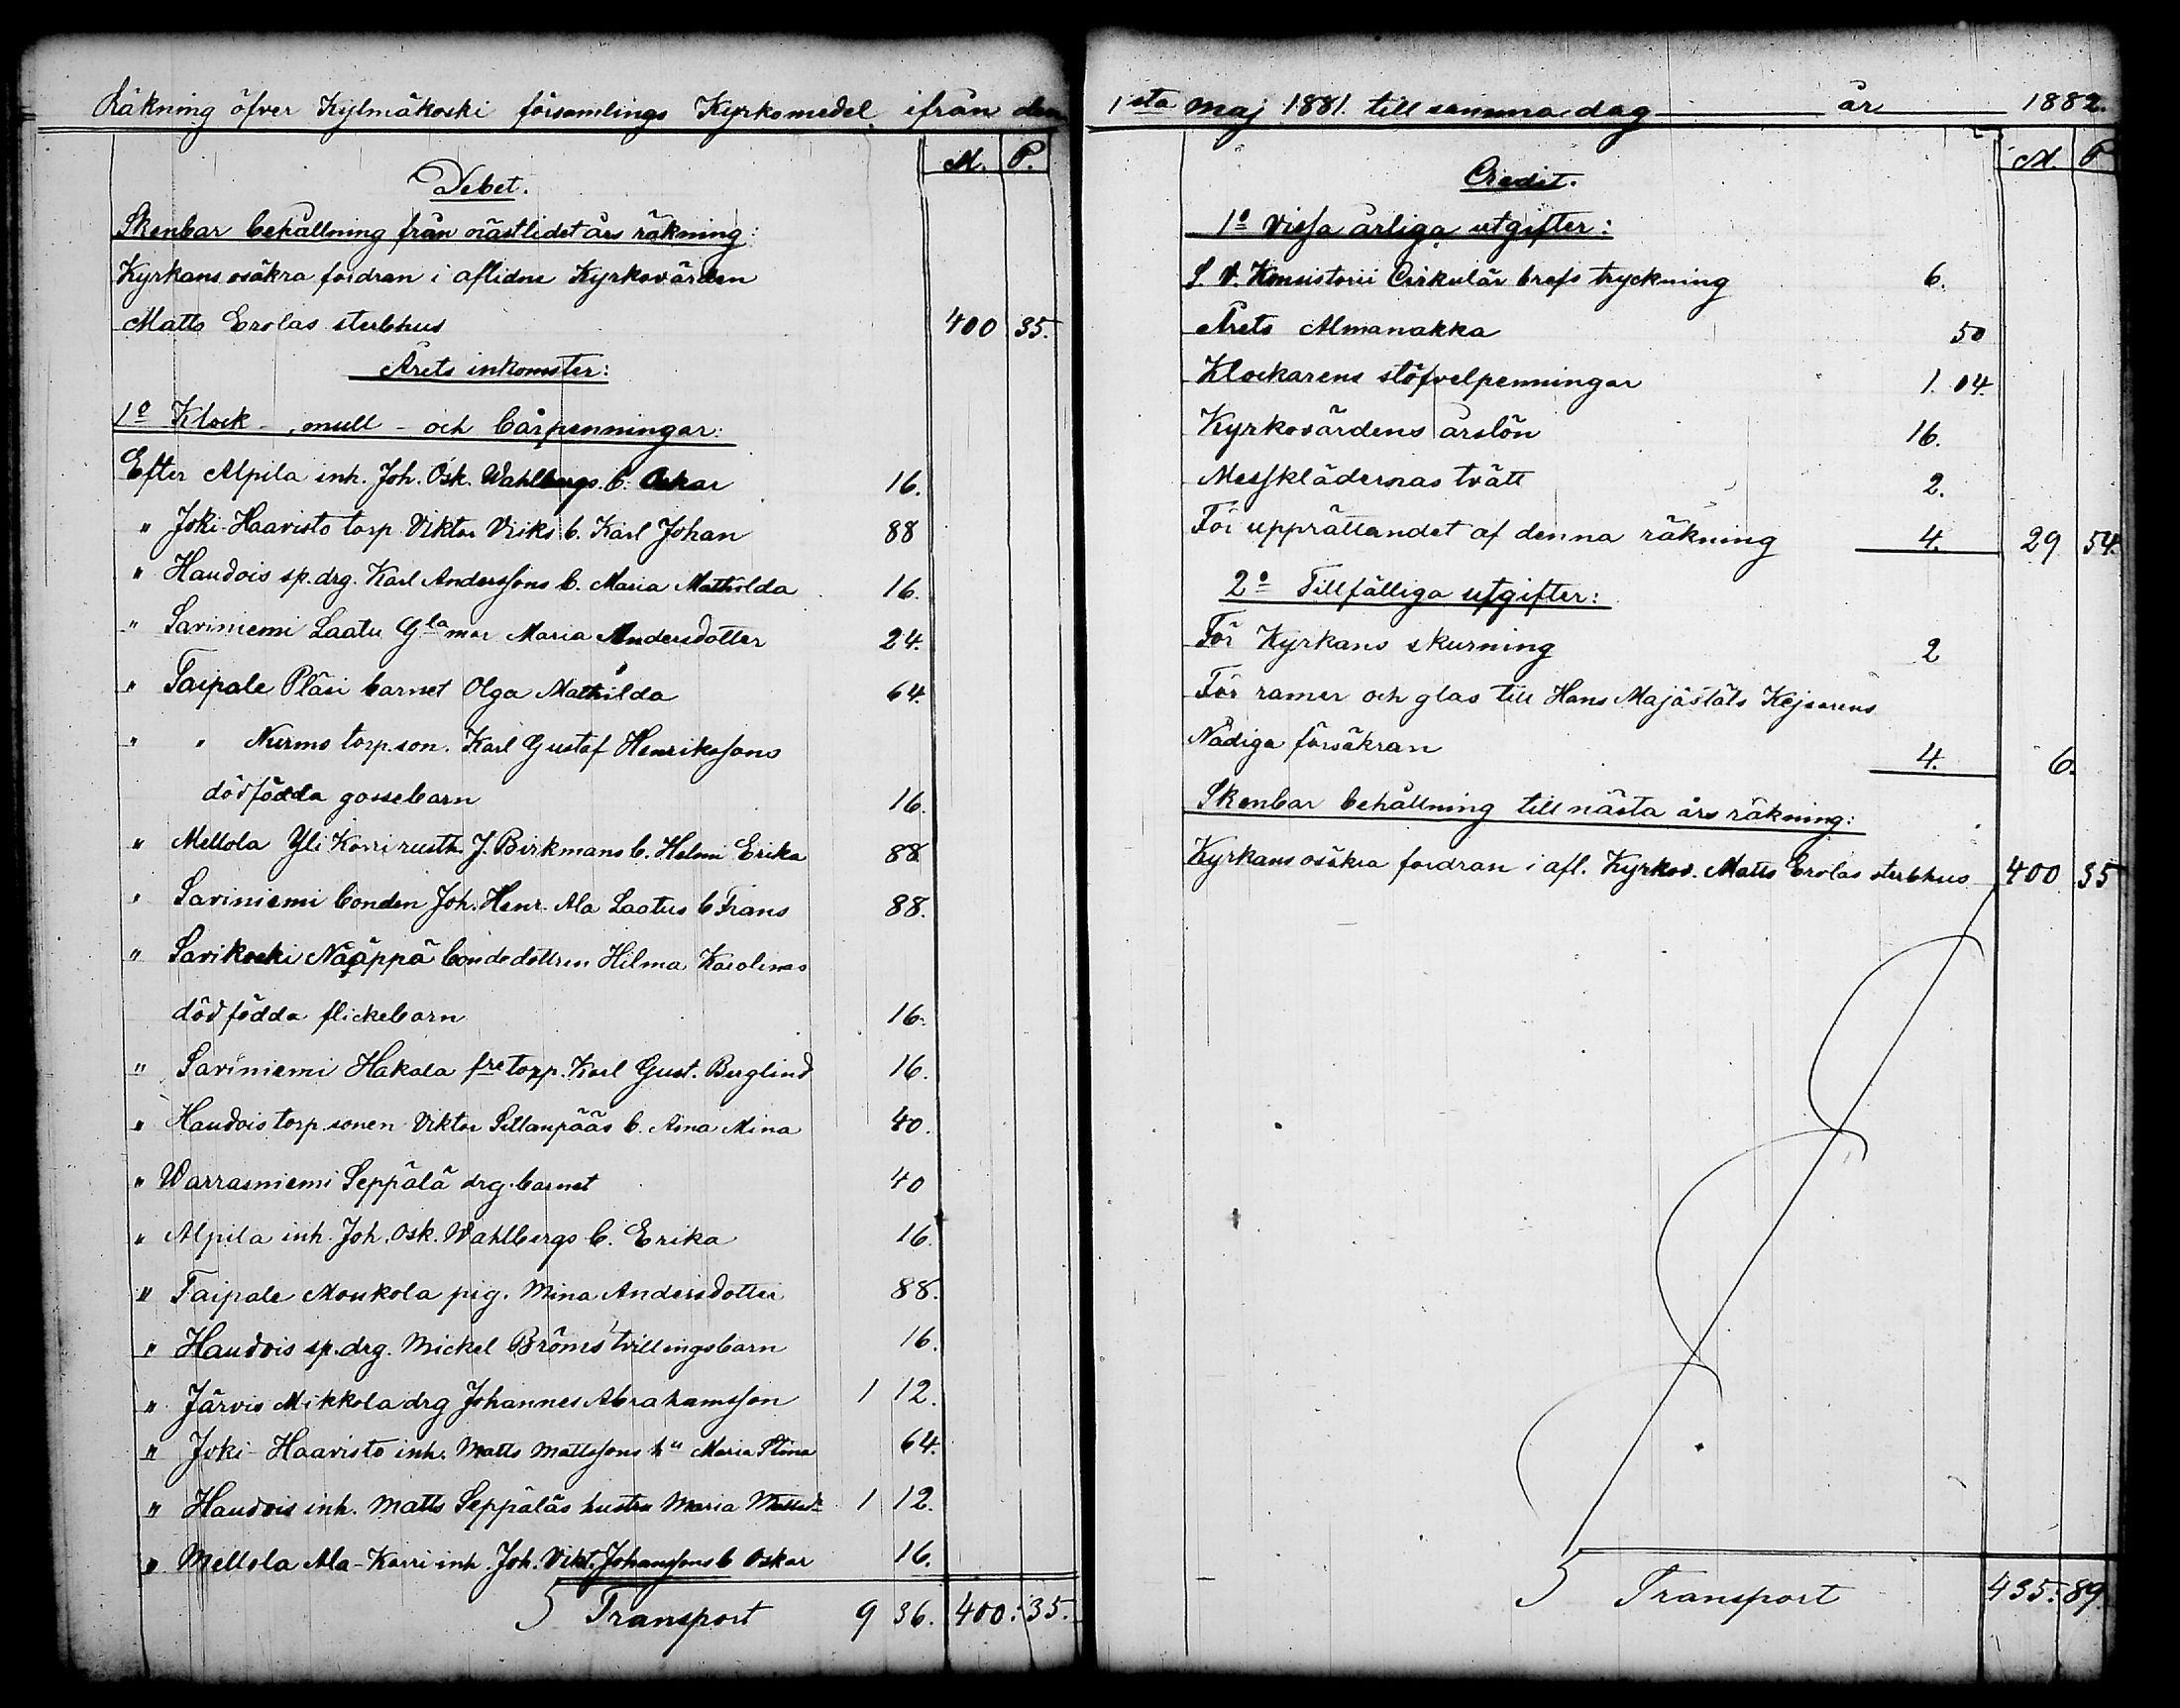 Räkning öfver Kylmäkoski församlings Kyrkomedel ifrån den
M. P.
Debet.
Skenbar behållning från nästlidet års räkning:
Kyrkans osäkra fordran i aflidne Kyrkovärden
Matts Erolas sterbhus 400 35.
Årets inkomster:
1o Klock-, mull- och bårpenningar:
Efter Alpila inh. Joh. Osk. Wahlbergs b. Oskar 16.
" Joki-Haavisto torp Viktor Viiks b. Karl Johan 88
" Haudois sp. drg. Karl Anderssons b. Maria Mathilda 16.
" Saviniemi Laatu Gla mor Maria Andersdotter 24.
" Taipale Pläsi barnet Olga Mathilda 64.
" " Nurmo torp. son. Karl Gustaf Henrikssons
dödfödda gossebarn 16.
" Mellola Yli Korri rusth. J. Birkmans b. Helmi Erika 88
" Saviniemi bonden Joh. Henr. Ala Laatus b Frans 88.
" Savikoski Nääppä bondedottren Hilma Karolinas
dödfödda flickebarn 16.
" Saviniemi Hakala fre torp. Karl Gust. Berglind 16.
" Haudois torp. sonen Viktor Sillanpääs b. Aina Mina 40.
" Warrasniemi Seppälä drg. barnet 40
" Alpila inh. Joh. Osk. Wahlbergs b. Erika 16.
" Taipale Moukola pig. Mina Andersdotter 88.
" Haudois sp. drg. Mickel Bröms tvillingsbarn 16.
" Järvis Mikkola drg Johannes Abrahamsson 1 12.
" Joki-Haavisto inh. Matts Mattssons hu Maria Stina 64.
" Haudois inh. Matts Seppäläs hustru Maria 1 12.
" Mellola Ala-Korri inh. Joh. Vikt. Johanssons b Oskar 16.
Transport 9 36. 400. 35.
1sta Maj 1881. till samma dag år 1882.
M. P
Credit.
1o Vissa årliga utgifter:
S. V. Konsistorii Cirkulär brefs tryckning 6.
Årets Almanakka 50
Klockarens stöfvelpenningar 1. 04.
Kyrkovärdens årslön 16.
Messklädernas tvätt 2.
För upprättandet af denna räkning 4. 29 54.
2o Tillfälliga utgifter:
För Kyrkans skurning 2
För ramer och glas till Hans Majästäts Kejsarens
Nådiga försäkran 4. 6.
Skenbar behållning till nästa års räkning:
Kyrkans osäkra fordran i afl. Kyrkov. Matts Erolas sterbhus 400 35
Transport 435. 89.